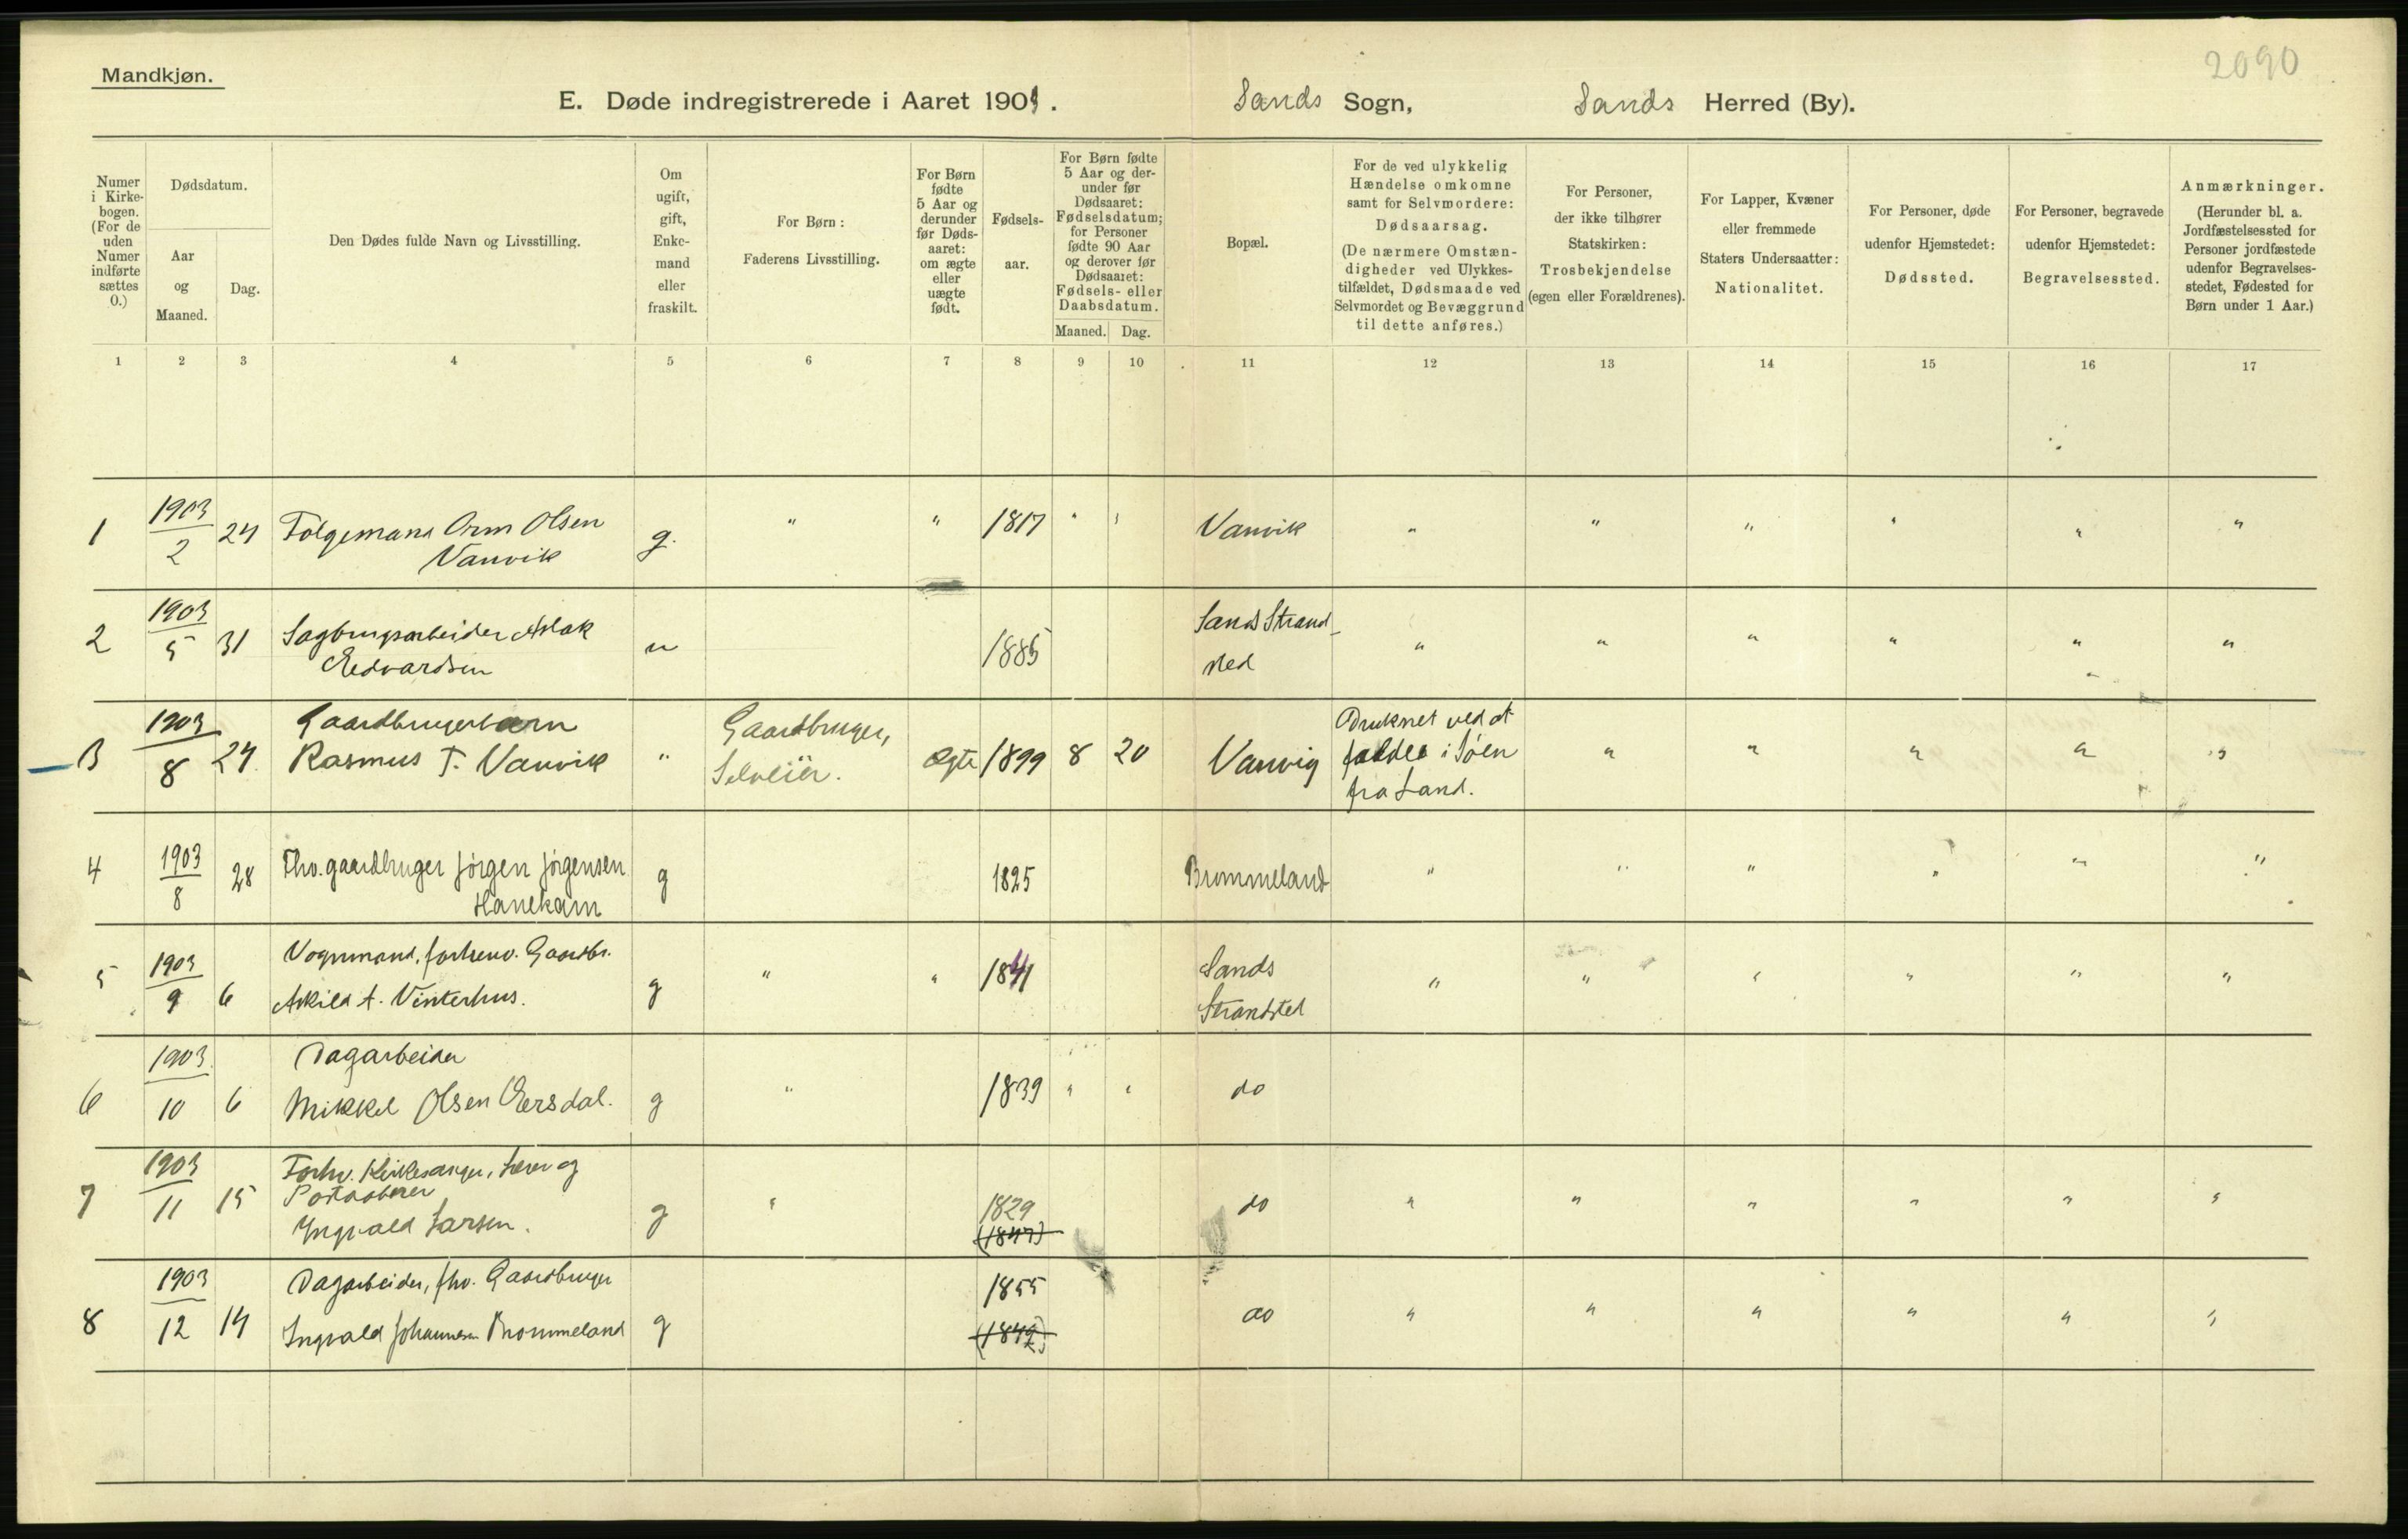 2090
Mandkjøn.
E. Døde indregistrerede i Aaret 1903. Sands Sogn, Sands Herred (By).
Numer i Kirkebogen. (For de uden Numer indførte sættes 0.)
Dødsdatum.
Aar og Maaned.
Dag.
Den Dødes fulde Navn og Livsstilling.
Om ugift, gift, Enkemand eller fraskilt.
For Børn: Faderens Livsstilling.
For Børn fødte 5 Aar og derunder før Dødsaaret: om ægte eller uægte født.
Fødselsaar.
For Børn fødte 5 Aar og derunder før Dødsaaret: Fødselsdatum; for Personer fødte 90 Aar og derover før Dødsaaret: Fødsels- eller Daabsdatum.
Maaned. Dag.
Bopæl.
For de ved ulykkelig Hændelse omkomne samt for Selvmordere: Dødsaarsag. (De nærmere Omstændigheder ved Ulykkestilfældet, Dødsmaade ved Selvmordet og Bevæggrund til dette anføres.)
For Personer, der ikke tilhører Statskirken: Trosbekjendelse (egen eller Forældrenes).
For Lapper, Kvæner eller fremmede Staters Undersaatter: Nationalitet.
For Personer, døde udenfor Hjemstedet: Dødssted.
For Personer, begravede udenfor Hjemstedet: Begravelsessted.
Anmærkninger. (Herunder bl. a. Jordfæstelsessted for Personer jordfæstede udenfor Begravelsesstedet, Fødested for Børn under 1 Aar.)
1 2 3 4 5 6 7 8 9 10 11 12 13 14 15 16 17
1 1903/2 24 Folgemand Orm Olsen g. " " 1817 " " Vanvik " " " " " "
Vanvik
2 1903/5 31 Sagbrugsarbeider Aslak u 1885 Sands Strand- " " " " " "
Eedvardsen sted
3 1903/8 24 Gaardbrugerbarn " Gaardbruger, Ægte 1899 8 20 Vanvig Druknet ved at " " " " "
Rasmus T. Vanvik Selveier. falde i Søen
fra Land.
4 1903/8 28 Fhv. gaardbruger Jørgen Jørgensen g 1825 Brommeland " " " " " "
Hanekam
5 1903/9 6 Vognmand, forhenv. Gaardbr. g " " 1841 Sands " " " " " "
Askild A. Vinterhus. Strandsted
6 1903/10 6 Dagarbeider g " 1839 " " do
Mikkel Olsen Eersdal.
7 1903/11 15 Forhv. Kirkesanger, Lærer og g " 1829 do " " " " " "
Postaabner (1847)
Ingvald Larsen.
8 1903/12 14 Dagarbeider, fhv. Gaardbruger g 1855 do " " " " " "
Ingvald Johannesen Brommeland (1842)